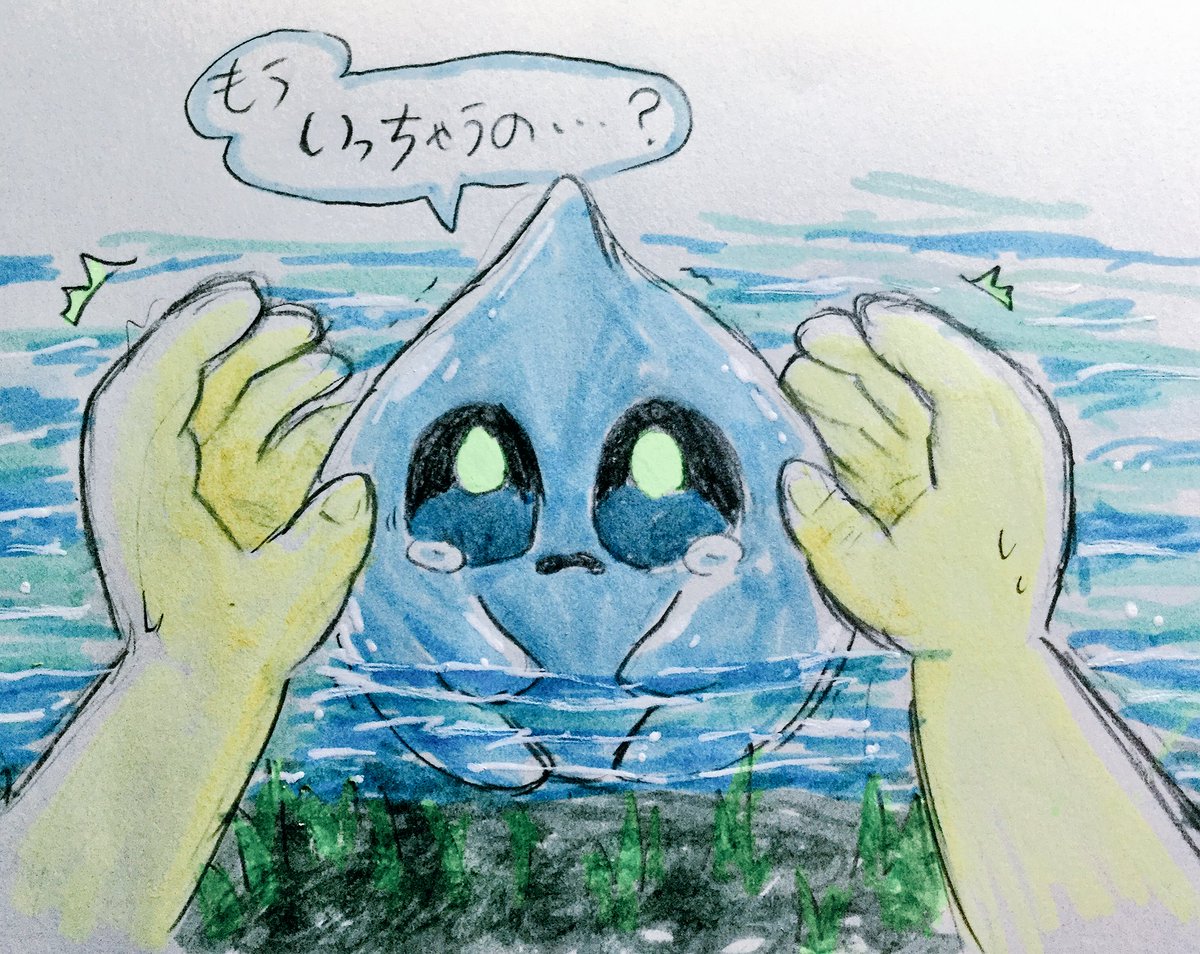 もう
いっちゃうの…?